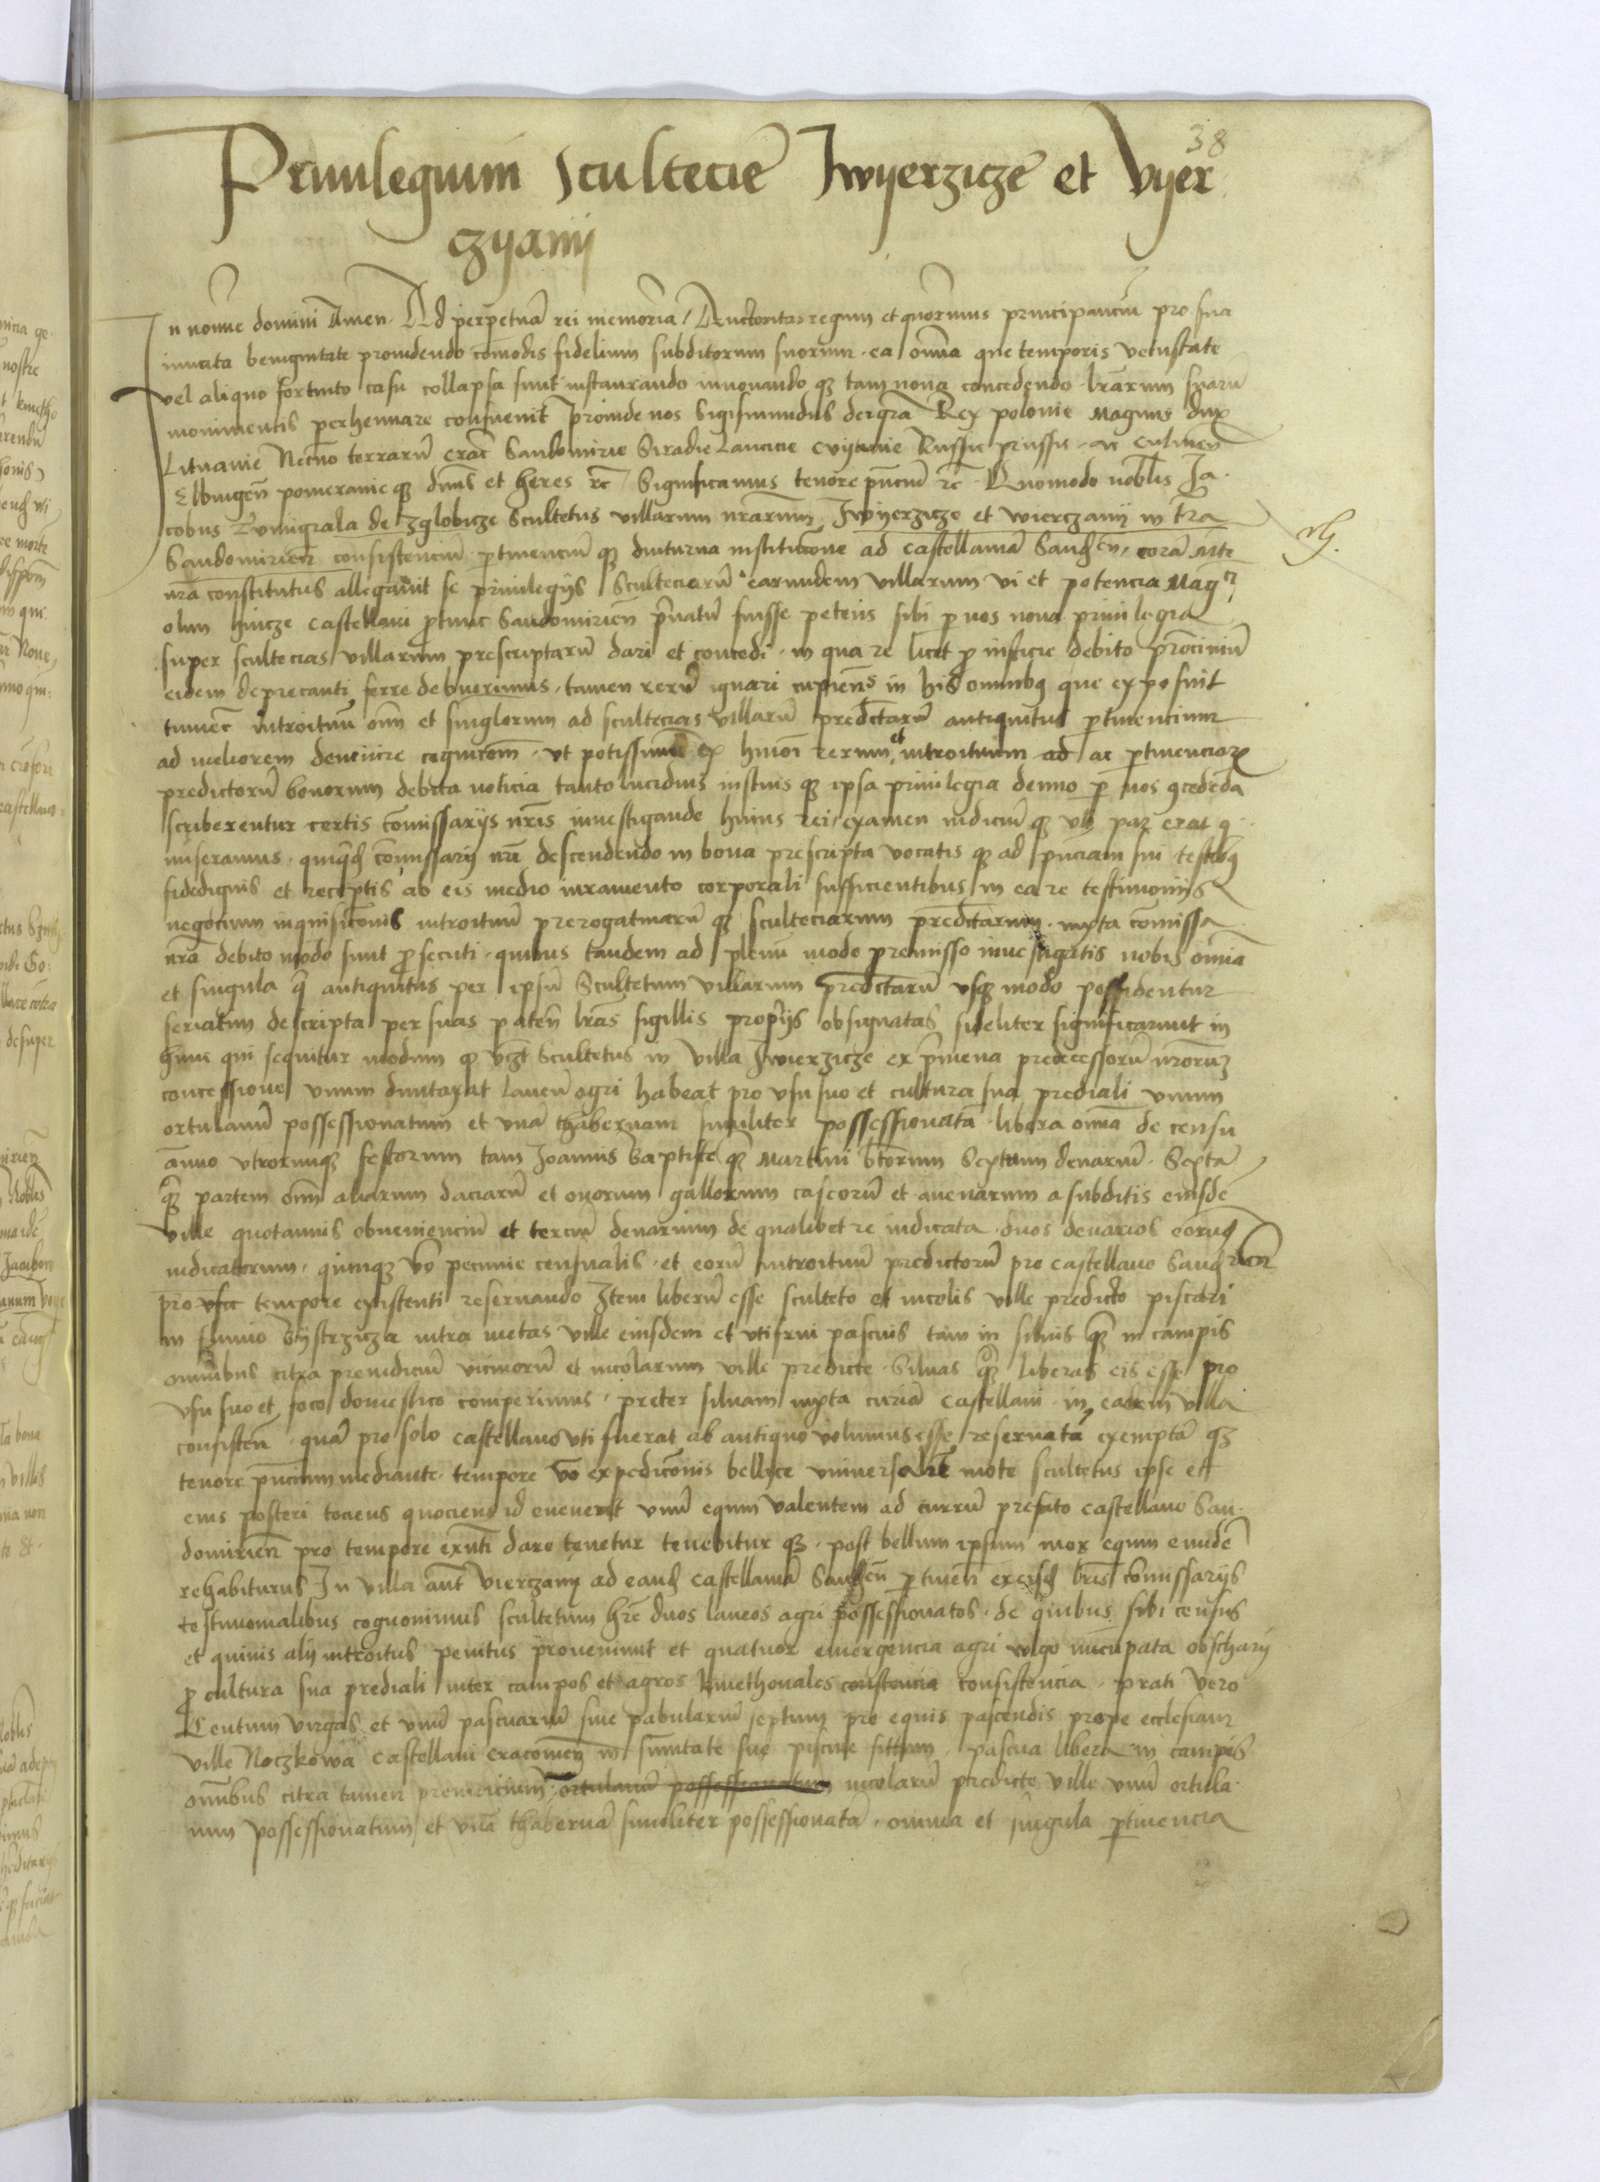 38
Priuilegium Scultecie Jwyerzicze et Vyer
czyanij
In nomine domini Amen. Ad perpetuā rei memoriā / Auctoritas regum et quorumuis principanciū pro sua
innata benignitate prouidendo cōmodis fidelium subditorum suorum . ea omīa que temporis vetustate
vel aliquo fortuito casu collapsa sunt instaurando innouando qz tam noua concedendo lrārum suarū
monimentis perhennare consueuit Proinde nos Sigismundus dei grā Rex polonie Magnus dux
Lituanie Necnō terrarū crac̄ Sandomirie Siradie Lancicie Cuijauie Russie prussie . ac Culmen̄
Elbingen̄ pomeranie qz dn̄us et heres rc̄ / Significamus tenore pn̄ciū rc̄ . Quomodo nobilis Ja
cobus de Zglobicze Scultetus villarum nr̄arum Jwyerzicze et wierczanij in trā
Sandomirien̄ consistenciū ptinenciū qz diuturna institucōne ad Castellaniā Sand̄en̄ . corā Mte
nrā constitutus allegauit se priuilegijs Sculteciarū earundem villarum vi et potencia Mag͞ci
olim hincze castellani protunc Sandomirien̄ priuatū fuisse petens sibi p nos noua priuilegia
super scultecias villarum prescriptarū dari et concedi . in qua re licet p iusticie debito
eidem deprecanti ferre debuerimus . tamen rerū ignari cupiens in his omnibz que exposuit
tum eciā introituū om̄ et singlorum ad scultecias villarū predctarū antiquitus ptinencium
ad meliorem deuenire cognicōm . vt potissimū ex hmōi rerum et introituum ad ac ptinenciarz
predictorū bonorum debita noticia tanto lucidius iustius qz ipsa priuilegia denuo p nos 9cedēda
scriberentur certis cōmissarijs nr̄is inuestigande huius rei examen iudiciū qz vti par erat 9
miseramus . quiquid cōmissarij nr̄i descendendo in bona prescripta vocatis qz ad pn̄ciam sui testibz
fidedignis et receptis ab eis medio iuramento corporali sufficientibus in ea re testimonijs
negocium inquisicōnis introituū prerogatiuarū qz sculteciarum predctarum . iuxta cōmissa
nrā debito modo sunt prosecuti . quibus tandem ad plenū modo premisso inuestigatis nobis omnia
et singula q̄ antiquitus per ipsū Scultetum villarum predctarū vsqz modo possidentur
seriatim descripta per suas paten̄ lrās sigillis proprijs obsignatas fideliter significarunt in
hunc qui sequitur modum qz vz̄ Scultetus in villa Jwierzicze ex pimeua predecessorū nr̄orum
concessione vnum duntaxat laneū agri habeat pro vsu suo et cultura sua prediali vnum
ortulanū possessionatum et vnā thabernam similiter possessionatā . libera omīa de censu
anno vtrorumqz festorum tam Joannis Baptiste qz Martini stōrum Septimum denariū . Septā
qz partem om̄ aliarum daciarū et ouorum gallorum caseorū et auenarum a subditis eiusdē
ville quotannis obueniencium et terciū denarium de qualibet re iudicata . duos denarios eorūd
iudicatorum . quinqz vo pecunie censualis . et eorū introituū predictorū pro castellano Sand rien̄
pro vsu tempore existenti reseruando Item liberū esse sculteto et incolis ville predicte piscari
in fluuio Bystrzicza intra metas ville eiusdem et vtifrui pascuis tam in siluis qz in campis
omnibus citra preiudiciū vicinorū et incolarum ville predicte . Siluas qz liberas eis esse pro
vsu suo et foco domestico comperimus . preter siluam iuxta curiā Castellani . in eadem villa
consisten̄ . quā pro solo castellano vti fuerat ab antiquo volumus esse reseruatā exemptā qz
tenore pn̄cium mediante . tempore vo expedicōnis bellice vniversalit̄ mote scultetus ipse et
eius posteri tociens quociens id euenerit vnū equm valentem ad currū prefato castellano San
domirien̄ pro tempore exn̄ti dare tenetur tenebitur qz . post bellum ipsum mox equm eundē
rehabiturus Jn villa aūt Vierczanij ad eand castellaniā Sanden̄ ptinen̄ ex eisd lr̄is cōmissarijs
testimonialibus cognouimus scultetum hr̄e duos laneos agri possessionatos . de quibus sibi census
et quiuis alij introitus penitus proueniunt et quatuor emergencia agri wlgo nūcupata obscharij
p cultura sua prediali inter campos et agros kmethonales constencia consistencia . prati vero
Centum virgas et vnū pascuariū siue pabulariū septum pro equis pascendis prope ecclesiam
ville Noczkowa castellani cracouien̄ in sumitate sue piscine sittum . pascua libera in campis
omnibus citra tamen preiudicium ortulanū possessionatum incolarū predicte ville vnū ortula
num possessionatum et vnā thabernā similiter possessionatā . omnia et singula ptinencia